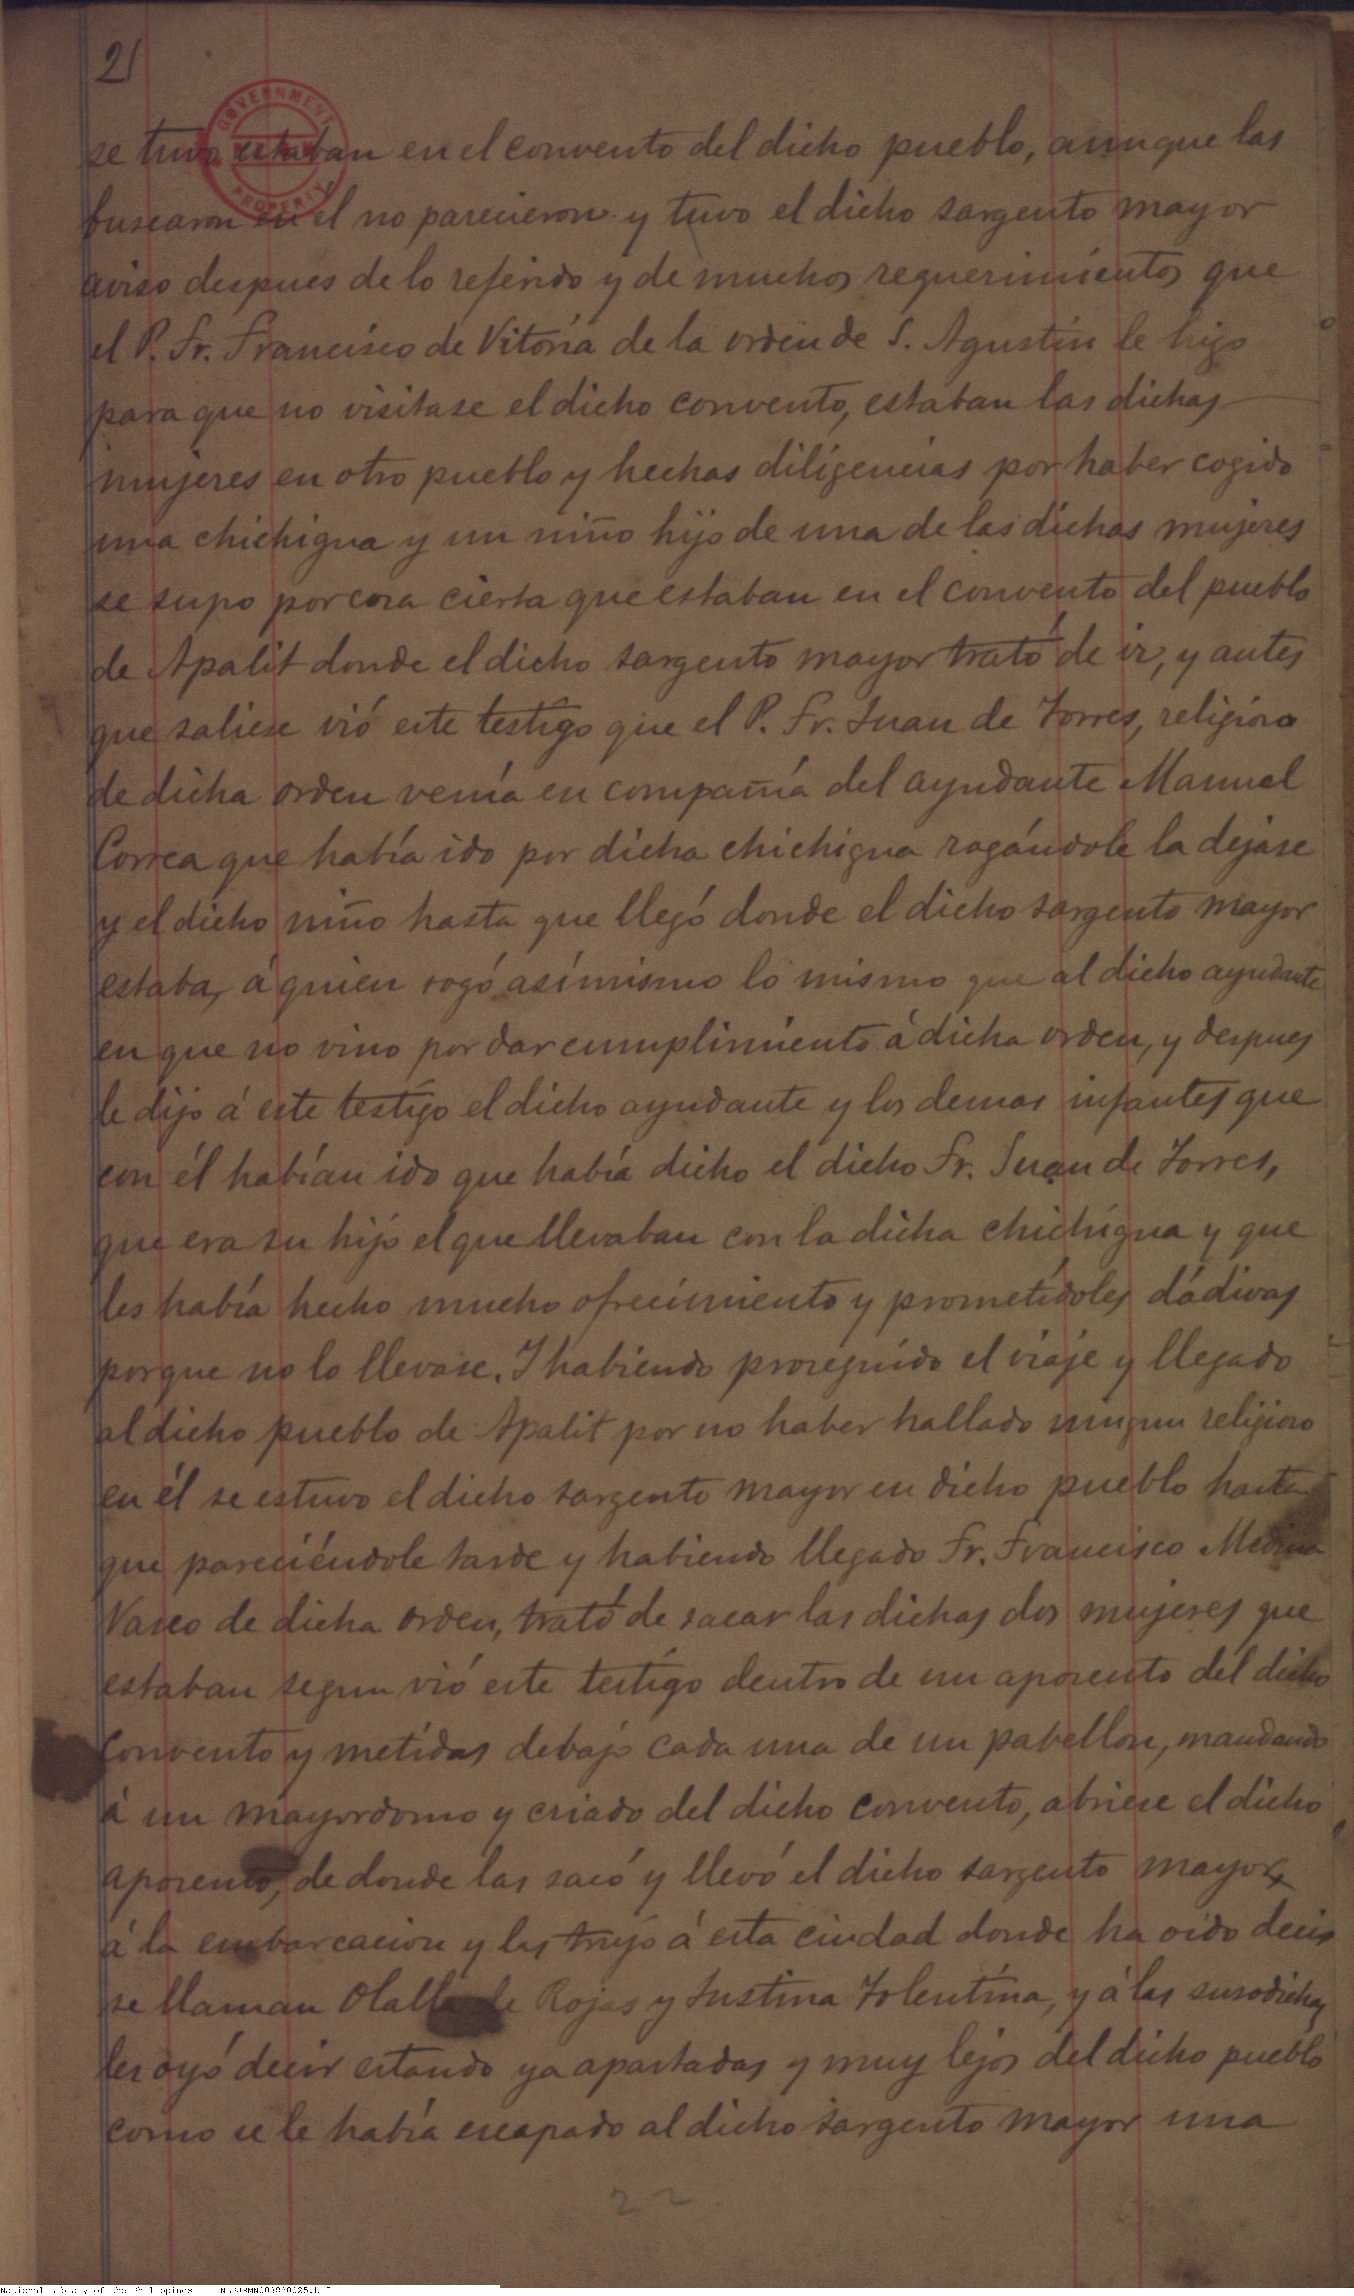 21
GOVERNMENT
PROPERTY
se tuvo estaban en el convento del dicho pueblo, aunque las
buscaron en el no parecieron y tuvo el dicho sargento mayor
aviso despues de lo referido y de muchos requerimientos que
el P. Fr. Francisco de Vitoria de la orden de S. Agustín le hizo
para que no visitase el dicho convento, estaban las dichas
mujeres en otro pueblo y hechas diligencias por haber cogido
una chichigua y un niño hijo de una de las dichas mujeres
se supo por cosa cierta que estaban en el convento del pueblo
de Apalit donde el dicho sargento mayor trató de ir, y antes
que saliese vió este testigo que el P. Fr. Juan de Torres, religioso
de dicha orden venía en compañía del ayudante Manuel
Correa que había ido por dicha chichigua rogándole la dejase
y el dicho niño hasta que llegó donde el dicho sargento mayor
estaba, á quien rogó asímismo lo mismo que al dicho ayudante
en que no vino por dar cumplimiento á dicha orden, y despues
le dijo á este testigo el dicho ayudante y los demas infantes que
con él habían ido que había dicho el dicho Fr. Juan de Torres,
que era su hijo el que llevaban con la dicha chichigua y que
les había hecho mucho ofrecimiento y prometídoles dádivas
porque no lo llevase. Y habiendo proseguido el viaje y llegado
al dicho pueblo de Apalit por no haber hallado ningun religioso
en él se estuvo el dicho sargento mayor en dicho pueblo hasta
que pareciéndole tarde y habiendo llegado Fr. Francisco Medina
Vasco de dicha orden, trató de sacar las dichas dos mujeres que
estaban segun vió este testigo dentro de un aposento del dicho
convento y metidas debajo cada una de un pabellon, mandando
á un mayordomo y criado del dicho convento, abriese el dicho
aposento, de donde las sacó y llevó el dicho sargento mayor
á la embarcacion y las trujo á esta ciudad donde ha oido decir
se llaman Olalla de Rojas y Justina Tolentina, y á las susodichas
les oyó decir estando ya apartadas y muy lejos del dicho pueblo
como se le había escapado al dicho sargento mayor una
22